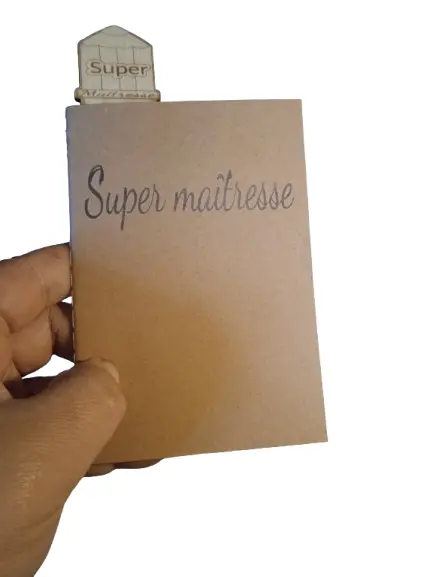 Super
Maîtresse
Super maîtresse